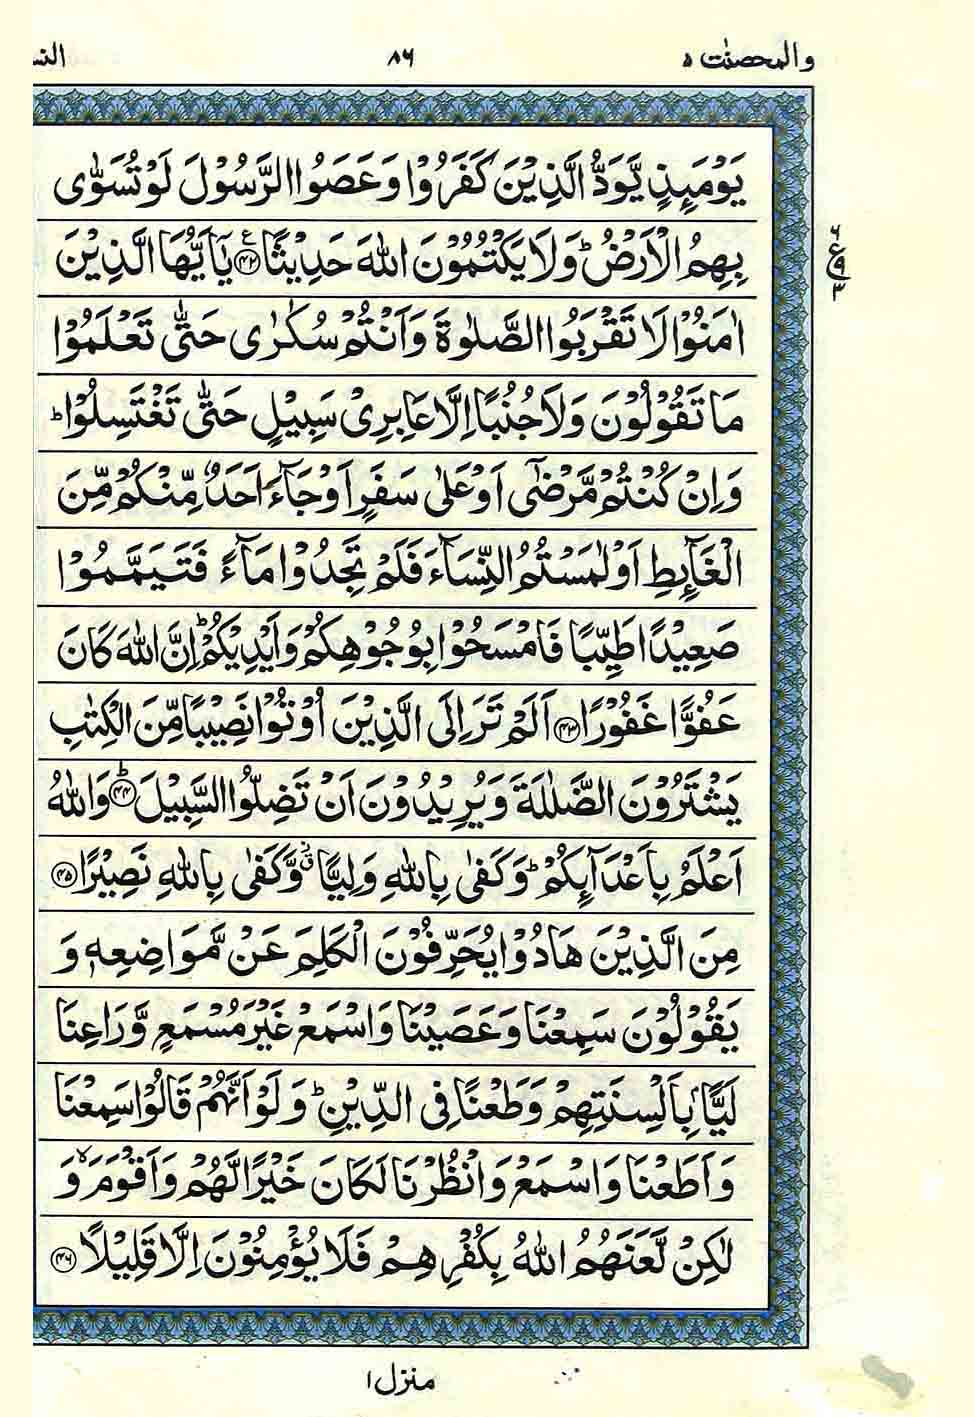 والمحصنٰت ۵
۸۶
النس
یَوْمَىِٕذٍ یَّوَدُّ الَّذِیْنَ كَفَرُوْا وَ عَصَوُا الرَّسُوْلَ لَوْ تُسَوّٰى
بِهِمُ الْاَرْضُ ؕ وَ لَا یَكْتُمُوْنَ اللّٰهَ حَدِیْثًا ﴿۴۲﴾ ع یٰۤاَیُّهَا الَّذِیْنَ
۶ ع ۹ ۳
اٰمَنُوْا لَا تَقْرَبُوا الصَّلٰوةَ وَ اَنْتُمْ سُكٰرٰى حَتّٰى تَعْلَمُوْا
مَا تَقُوْلُوْنَ وَ لَا جُنُبًا اِلَّا عَابِرِیْ سَبِیْلٍ حَتّٰى تَغْتَسِلُوْا ؕ
وَ اِنْ كُنْتُمْ مَّرْضٰۤى اَوْ عَلٰى سَفَرٍ اَوْ جَآءَ اَحَدٌ مِّنْكُمْ مِّنَ
الْغَآىِٕطِ اَوْ لٰمَسْتُمُ النِّسَآءَ فَلَمْ تَجِدُوْا مَآءً فَتَیَمَّمُوْا
صَعِیْدًا طَیِّبًا فَامْسَحُوْا بِوُجُوْهِكُمْ وَ اَیْدِیْكُمْ ؕ اِنَّ اللّٰهَ كَانَ
عَفُوًّا غَفُوْرًا ﴿۴۳﴾ اَلَمْ تَرَ اِلَى الَّذِیْنَ اُوْتُوْا نَصِیْبًا مِّنَ الْكِتٰبِ
یَشْتَرُوْنَ الضَّلٰلَةَ وَ یُرِیْدُوْنَ اَنْ تَضِلُّوا السَّبِیْلَ ﴿۴۴﴾ؕ وَ اللّٰهُ
اَعْلَمُ بِاَعْدَآىِٕكُمْ ؕ وَ كَفٰى بِاللّٰهِ وَلِیًّا ٘ۗ وَّ كَفٰى بِاللّٰهِ نَصِیْرًا ﴿۴۵﴾
مِنَ الَّذِیْنَ هَادُوْا یُحَرِّفُوْنَ الْكَلِمَ عَنْ مَّوَاضِعِهٖ وَ
یَقُوْلُوْنَ سَمِعْنَا وَ عَصَیْنَا وَ اسْمَعْ غَیْرَ مُسْمَعٍ وَّ رَاعِنَا
لَیًّۢا بِاَلْسِنَتِهِمْ وَ طَعْنًا فِی الدِّیْنِ ؕ وَ لَوْ اَنَّهُمْ قَالُوْا سَمِعْنَا
وَ اَطَعْنَا وَ اسْمَعْ وَ انْظُرْنَا لَكَانَ خَیْرًا لَّهُمْ وَ اَقْوَمَ ۙ وَ
لٰكِنْ لَّعَنَهُمُ اللّٰهُ بِكُفْرِهِمْ فَلَا یُؤْمِنُوْنَ اِلَّا قَلِیْلًا ﴿۴۶﴾
منزل ۱